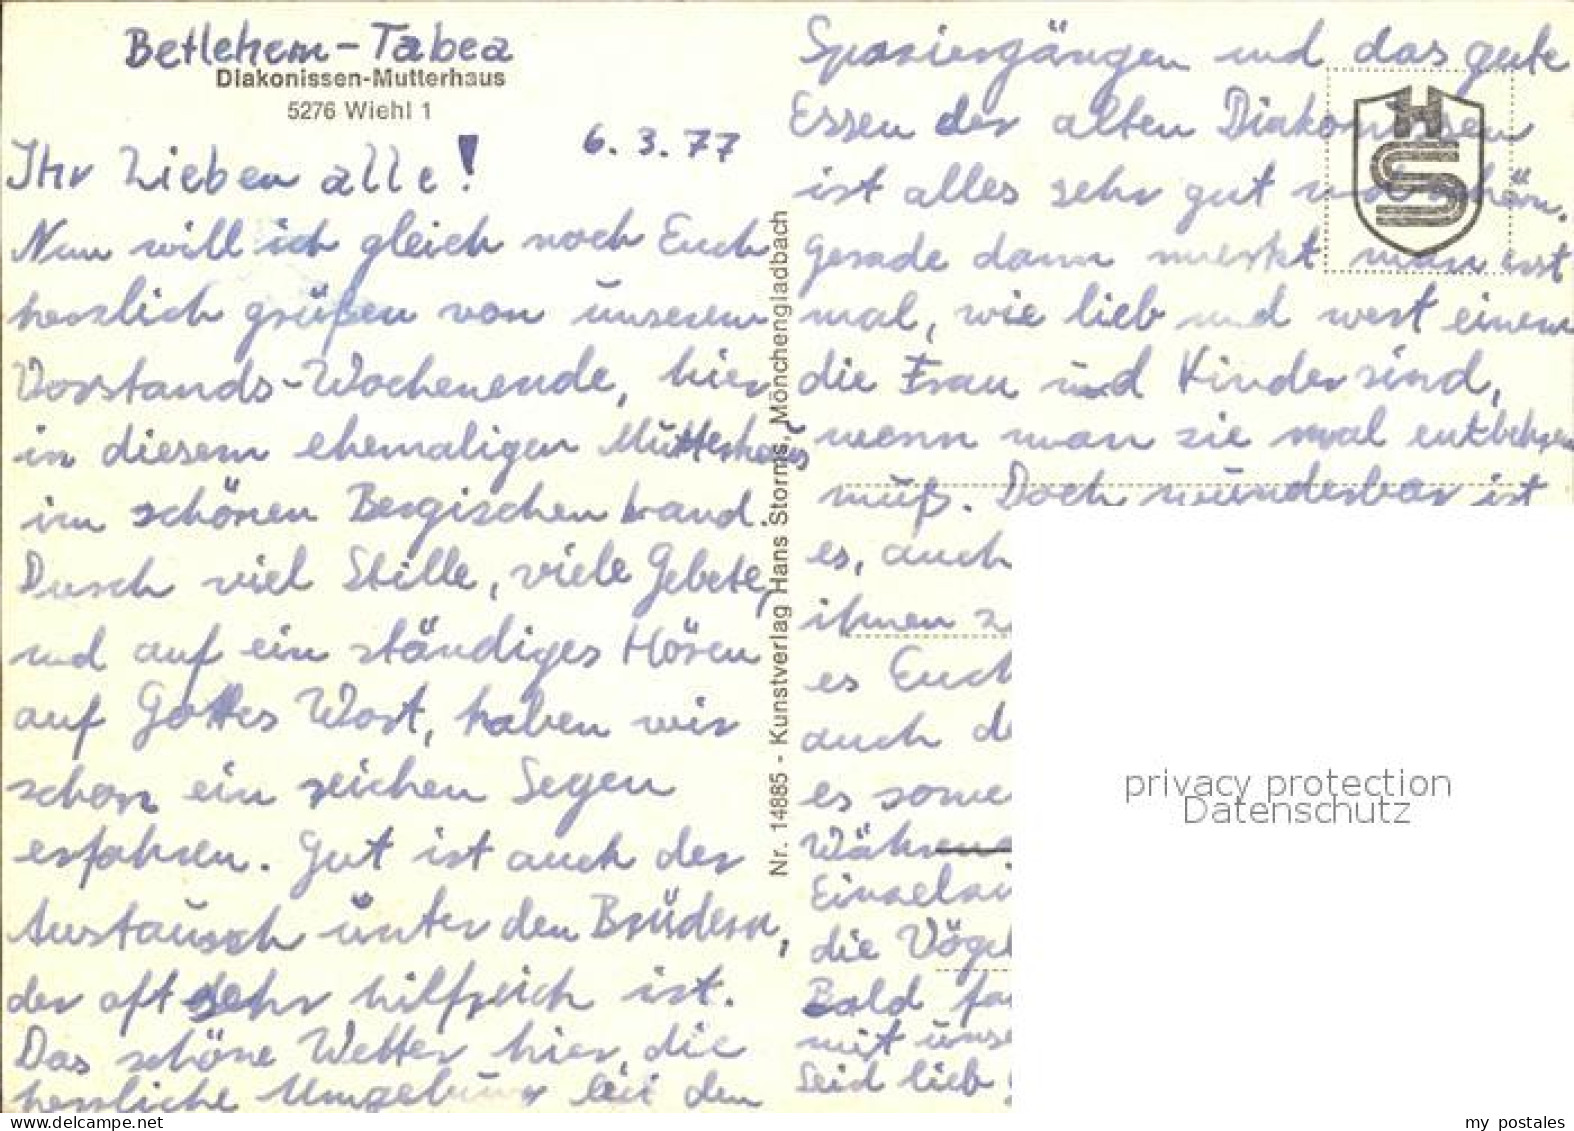 Betlehem - Tabea
Diakonissen-Mutterhaus
5276 Wiehl 1
6. 3. 77
Ihr Lieben alle!
Nun will ich gleich noch Euch
herzlich grüßen von unserem
Vorstands-Wochenende, hier
in diesem ehemaligen Mutterhaus
im schönen Bergischen Land.
Durch viel Stille, viele Gebete,
und auf ein ständiges Hören
auf Gottes Wort, haben wir
schon ein reichen Segen
erfahren. Gut ist auch der
Austausch unter den Brüdern,
der oft sehr hilfreich ist.
Das schöne Wetter hier, die
herrliche Umgebung bei den
Nr. 14885 - Kunstverlag Hans Storms, Mönchengladbach
Spaziergängen und das gute
Essen der alten Diakonissen
ist alles sehr gut und schön.
Gerade dann merkt man erst
mal, wie lieb und wert einem
die Frau und Kinder sind,
wenn man sie mal entbehren
muß. Doch wunderbar ist
es, auch
ihnen
es Euch
auch
es
die
Bald
mit
Seid lieb
HS
privacy protection
Datenschutz
www.delcampe.net
my_postales